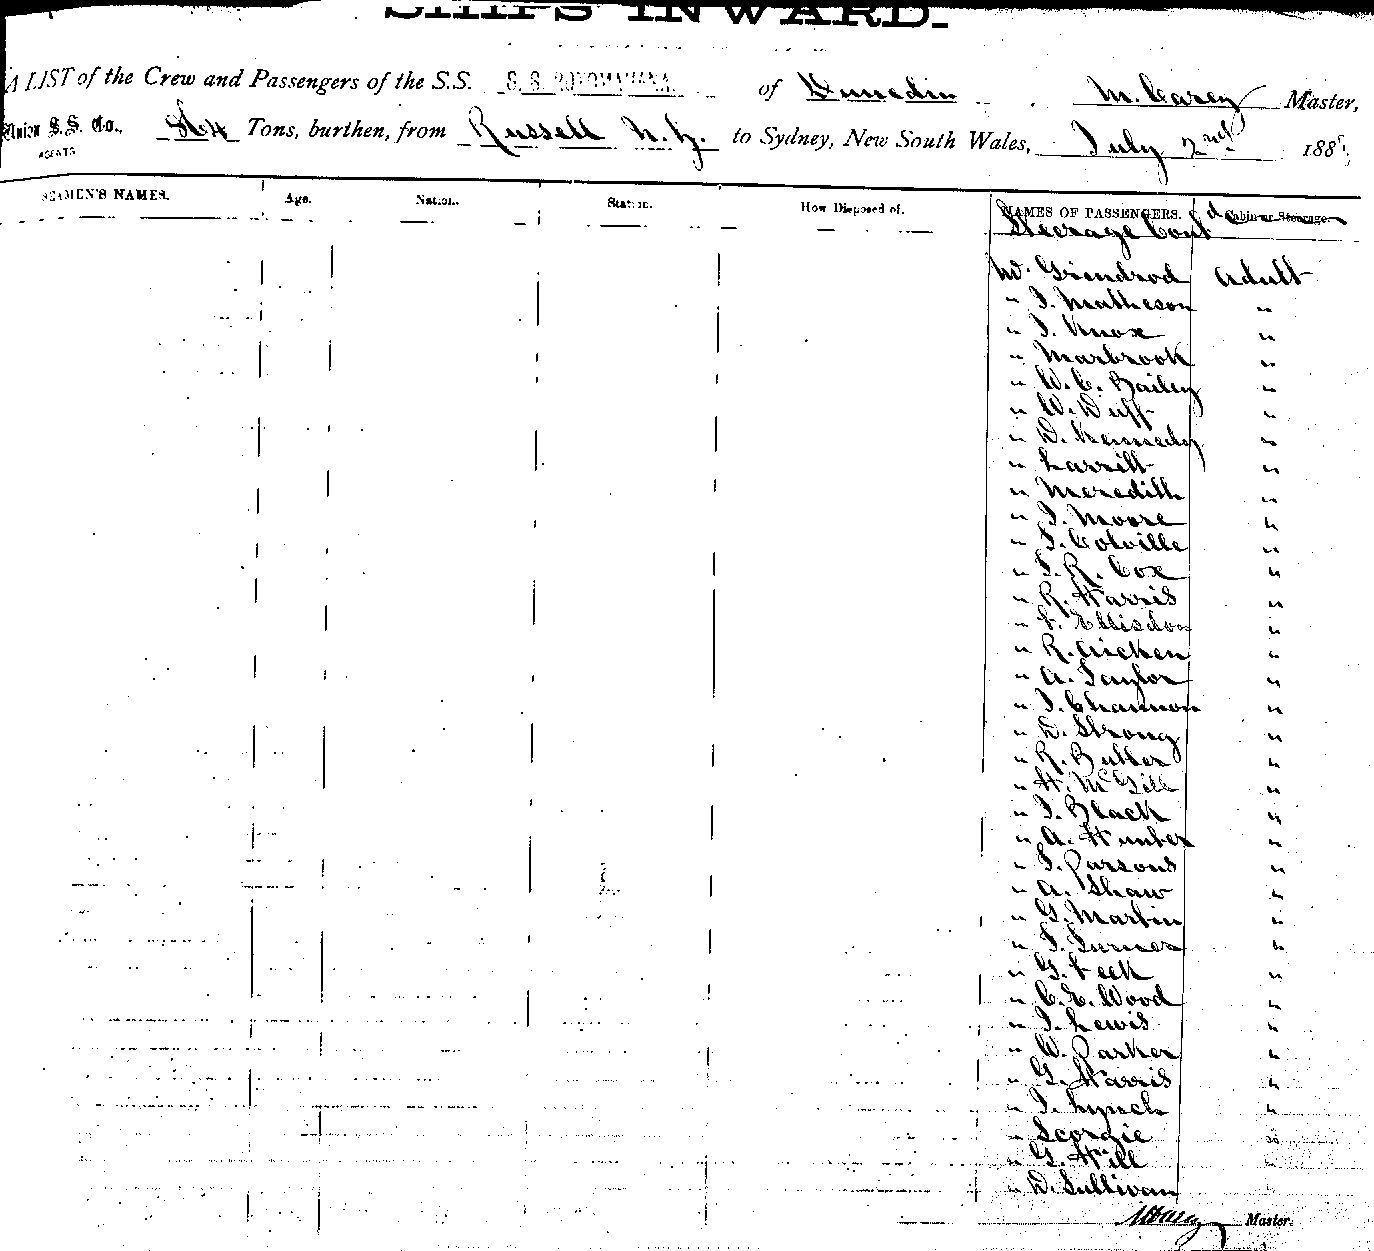 SHIPS INWARD.
A LIST of the Crew and Passengers of the S.S. S. S. ROTOMAHANA of Dunedin M. Carey Master,
Union S.S. Co., AGENTS 864 Tons, burthen, from Russell N.Z. to Sydney, New South Wales, July 2nd 188
SEAMEN'S NAMES. Age. Nation. Station. How Disposed of. NAMES OF PASSENGERS. Cabin or Steerage.
Steerage Contd
Mr. Grindrod Adult
" J. Matheson "
" J. Knox "
" Marbrook "
" W. C. Bailey "
" W. Duff "
" D. Kennedy "
" Larritt "
" Meredith "
" J. Moore "
" J. Colville "
" J. R. Cox "
" R. Harris "
" F. Ellisdon "
" R. Aicken "
" A. Taylor "
" J. Channon "
" D. Strong "
" R. Butler "
" H. McGill "
" J. Black "
" A. Hunter "
" J. Parsons "
" A. Shaw "
" G. Martin "
" J. Turner "
" G. Feek "
" C. E. Wood "
" J. Lewis "
" W. Parker "
" G. Harris "
" J. Lynch "
" Scorgie "
" G. Hill "
" D. Sullivan
M Carey Master.